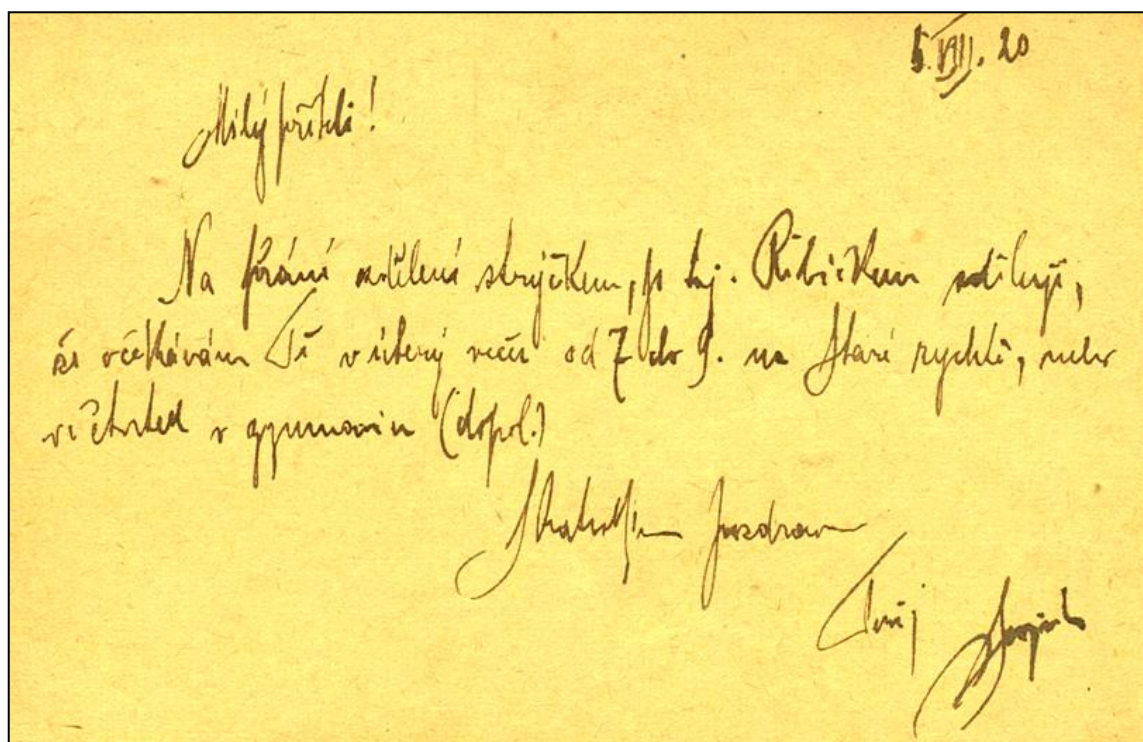 5. VIII. 20
Milý příteli!
Na přání sdělené strýčkem, p. taj. Ribičkem sděluji,
že očekávám Tě v úterý večer od 7 do 9. na Staré rychtě, nebo
ve čtvrtek v gymnasiu (dopol.)
pozdravem
Tvůj